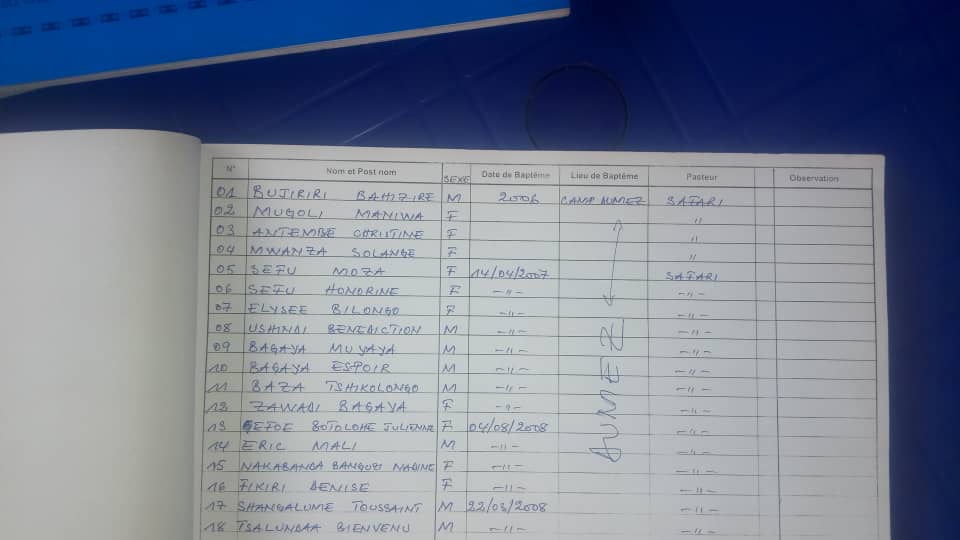 N° Nom et Post nom SEXE Date de Baptême Lieu de Baptême Pasteur Observation
01 BUJIRIRI BAHIZIRE M 2006 CAMP AUMEZ SAFARI
02 MUGOLI MANIWA F "
03 ANTEMBE CHRISTINE F "
04 MWANZA SOLANGE F "
05 SEFU MOZA F 14/04/2007 SAFARI
06 SEFU HONORINE F -"- -"-
07 ELYSEE BILONGO F -"- -"-
08 USHINDI BENEDICTION M -"- -"-
09 BAGAYA MUYAYA M -"- -"-
10 BAGAYA ESPOIR M -"- -"-
11 BAZA TSHIKOLONGO M -"- -"-
12 ZAWADI BAGAYA F -"- -"-
13 BOTOLOHE JULIENNE F 04/08/2008 -"-
14 ERIC MALI M -"- -"-
15 NAKABANDA NADINE F -"- -"-
16 FIKIRI DENISE F -"- -"-
17 SHANGALUME TOUSSAINT M 22/03/2008 -"-
18 BIENVENU M -"- -"-
AUMEZ